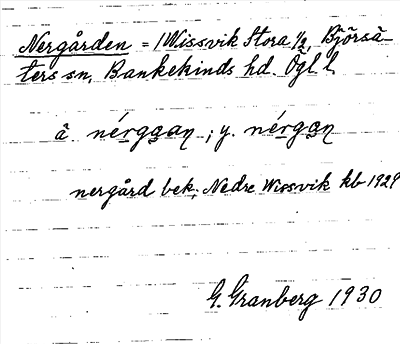 Nergården = /Wissvik Stora ½, Björsä-
ters sn, Bankekinds hd. Ögl. l.
å nérgaan ; y. nérgan
nergård bek; Nedre Wissvik kb 1929
G. Granberg 1930